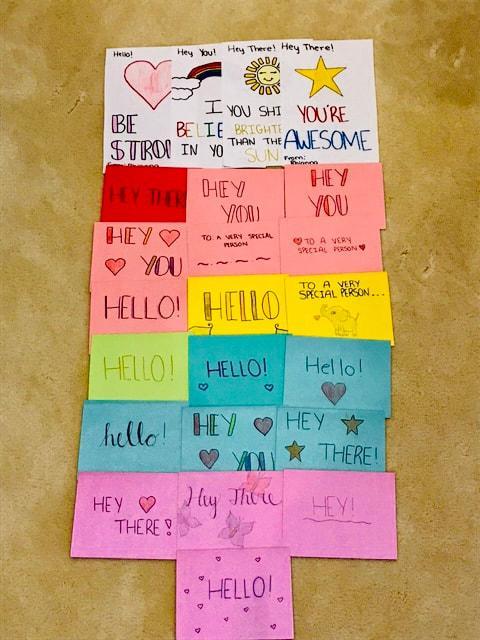 Hello!
BE
STRO
Hey You!
I
BELIE
IN YO
Hey There!
YOU SHI
BRIGHTE
THAN THE
SUN
Hey There!
YOU'RE
AWESOME
From:
Rhianna
HEY THER
HEY
YOU
HEY
YOU
HEY
YOU
TO: A VERY SPECIAL
PERSON
TO A VERY
SPECIAL PERSON
HELLO!
HELLO
TO A VERY
SPECIAL PERSON...
HELLO!
HELLO!
Hello!
hello!
HEY
YOU
HEY
THERE!
HEY
THERE!
Hey There
HEY!
HELLO!